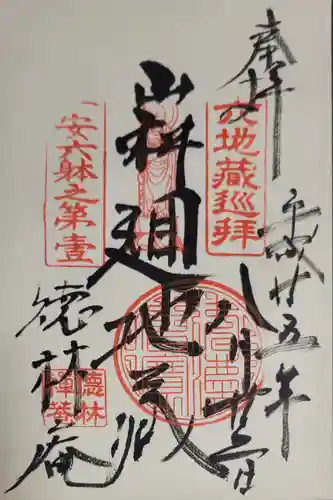 奉拝
平成廿五年
八月廿三日
六地蔵巡拝
山科廻地蔵
一安六躰之第壹
徳林庵
徳林
禅菴